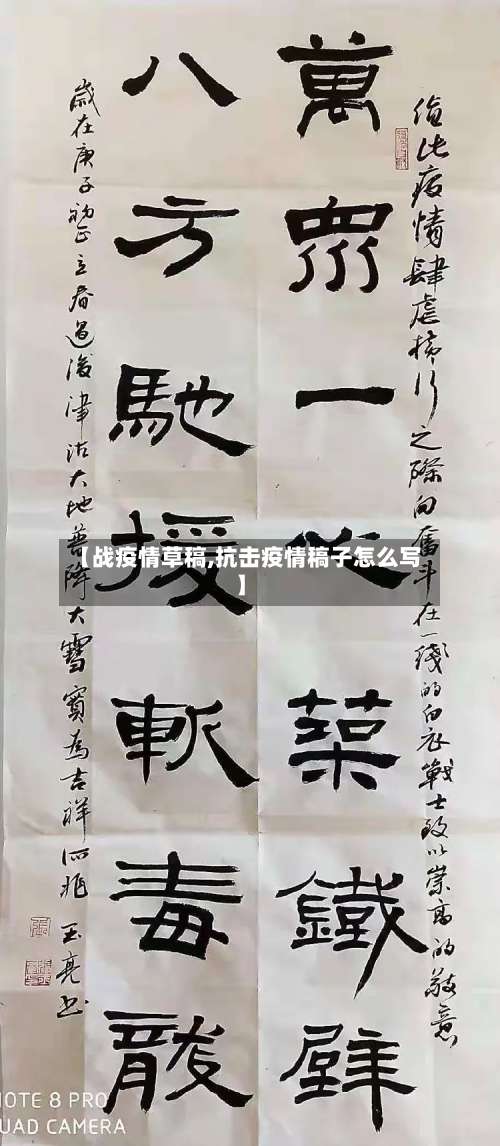 值此疫情肆虐橫行之際向奮斗在一綫的白衣戰士致以崇高的敬意
萬眾一心築鐵壁
八方馳援斬毒龍
歲在庚子初正立春過後津沽大地普降大雪實為吉祥所兆 王亮书
【战疫情草稿,抗击疫情稿子怎么写
】
NOTE 8 PRO
UAD CAMERA